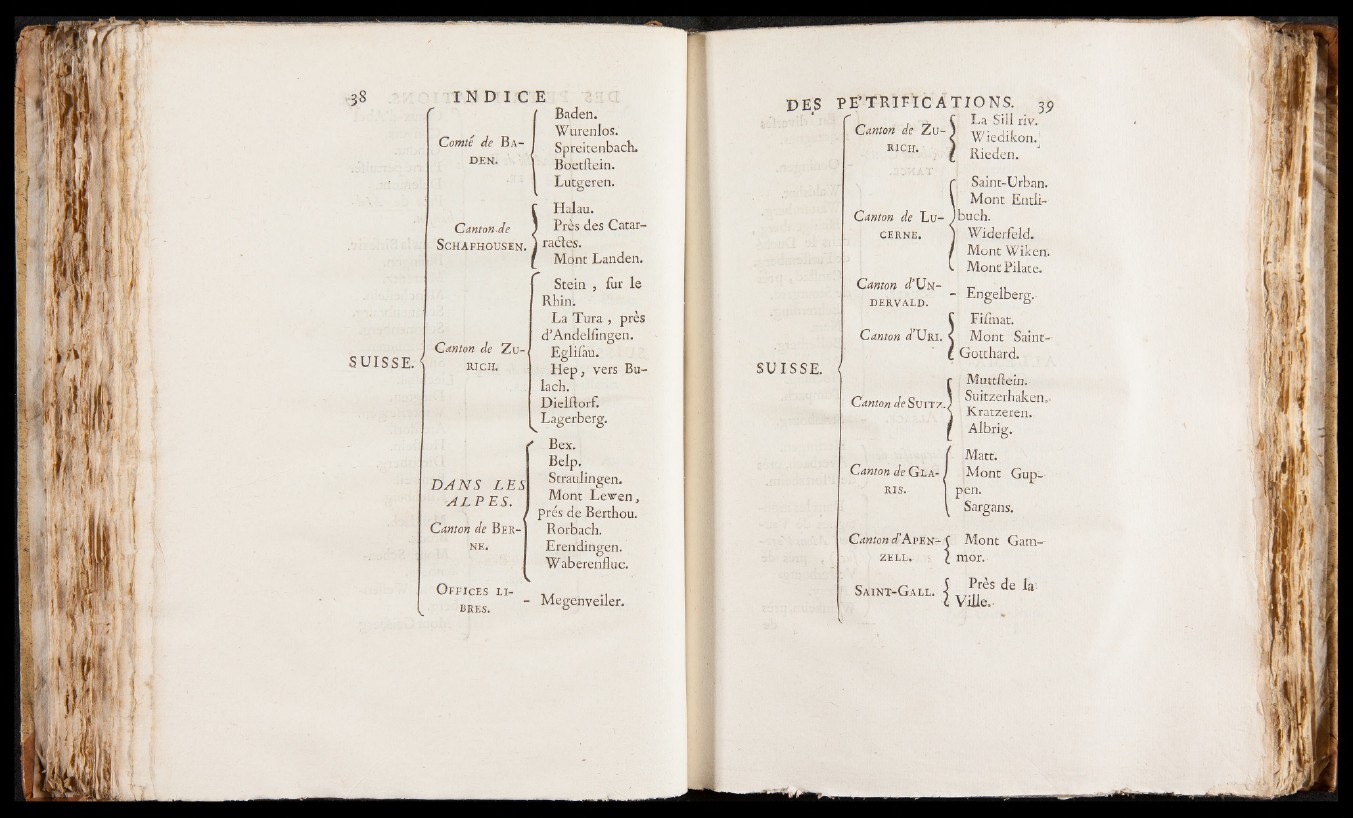 38 INDICE
SUISSE.
Comté de BA-
DEN.
Baden.
Wurenlos.
Spreitenbach.
Boetſtein.
Lutgeren.
Canton de
SCHAFHOUSEN.
Halau.
Près des Catar-
ractes.
Mont Landen.
Canton de ZU-
RICH.
Stein , ſur le
Rhin.
La Tura , près
d'Andelſingen.
Egliſau.
Hep, vers Bu-
lach.
Dielſtorf.
Lagerberg.
DANS LES
ALPES.
Canton de BER-
NE.
Bex.
Belp.
Straulingen.
Mont Lewen,
prés de Berthou.
Rorbach.
Erendingen.
Waberenfluc.
OFFICES LI-
BRES.
- Megenveiler.
DES PE'TRIFICATIONS. 39
SUISSE.
Canton de ZU-
RICH.
La Sill riv.
Wiedikon.
Rieden.
Canton de LU-
CERNE.
Saint-Urban.
Mont Entli-
buch.
Widerfeld.
Mont Wiken.
Mont Pilate.
Canton d'UN-
DERVALD.
- Engelberg.
Canton d'URI.
Fiſmat.
Mont Saint-
Gotthard.
Canton de SUITZ.
Muttſtein.
Suitzerhaken.
Kratzeren.
Albrig.
Canton de GLA-
RIS.
Matt.
Mont Gup-
pen.
Sargans.
Canton d'APEN-
ZELL.
Mont Gam-
mor.
SAINT-GALL.
Près de la
Ville.